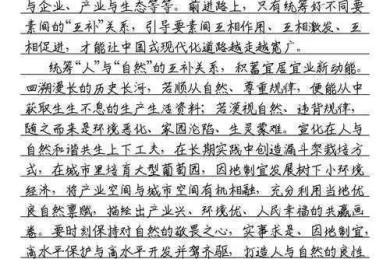 与企业、产业与生态等等。前进路上，只有统筹好不同要
素间的“互补”关系，引导要素间互相作用、互相激发、互
相促进，才能让中国式现代化道路越走越宽广。
统筹“人”与“自然”的互补关系，积蓄宜居宜业新动能。
回溯漫长的历史长河，若顺从自然、尊重规律，便能从中
获取生生不息的生产生活资料；若漠视自然、违背规律，
随之而来是环境恶化、家园沦陷、生灵蒙难。宣化在人与
自然和谐共生上下工夫，在长期实践中创造漏斗架栽培方
式，在城市里培育大型葡萄园，因地制宜发展树下小环境
经济，将产业空间与城市空间有机相融，充分利用当地优
良自然禀赋，描绘出产业兴、环境优、人民幸福的共赢画
卷。要时刻保持对自然的敬畏之心，实事求是、因地制宜，
高水平保护与高水平开发并驾齐驱，打造人与自然的良性